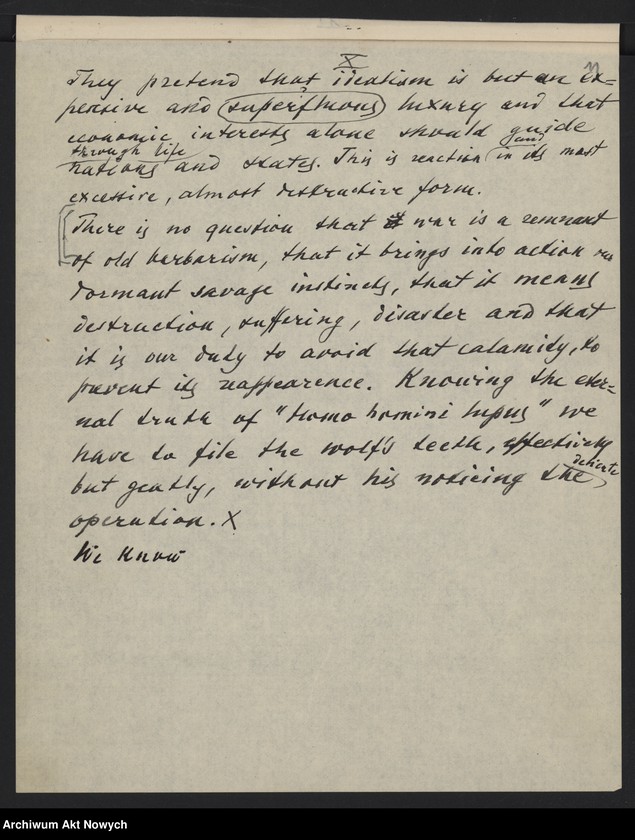 X
They pretend that idealism is but an ex-
pensive and superfluous luxury and that
economic interests alone should guide
through life and
nations and states. This is reaction in its most
excessive, almost destructive form.
There is no question that it war is a remnant
of old barbarism, that it brings into action our
dormant savage instincts, that it means
destruction, suffering, disaster and that
it is our duty to avoid that calamity, to
prevent its reappearence. Knowing the eter-
nal truth of "Homo homini lupus" we
have to file the wolf's teeth, effectively
delicate
but gently, without his noticing the
operation. X
We know
Archiwum Akt Nowych